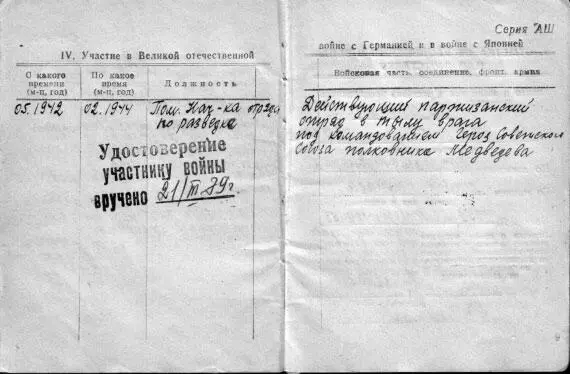 Серия АШ
IV. Участие в Великой отечественной
войне с Германией и в войне с Японией
С какого
времени
(м-ц, год)
По какое
время
(м-ц, год)
Должность
Войсковая часть, соединение, фронт, армия
05.1942
02.1944
Пом. Нач-ка отряда
по разведке
Действующий партизанский
отряд в тылу врага
под командованием Героя Советского
Союза полковника Медведева
Удостоверение
участнику войны
вручено 21/III.89г.